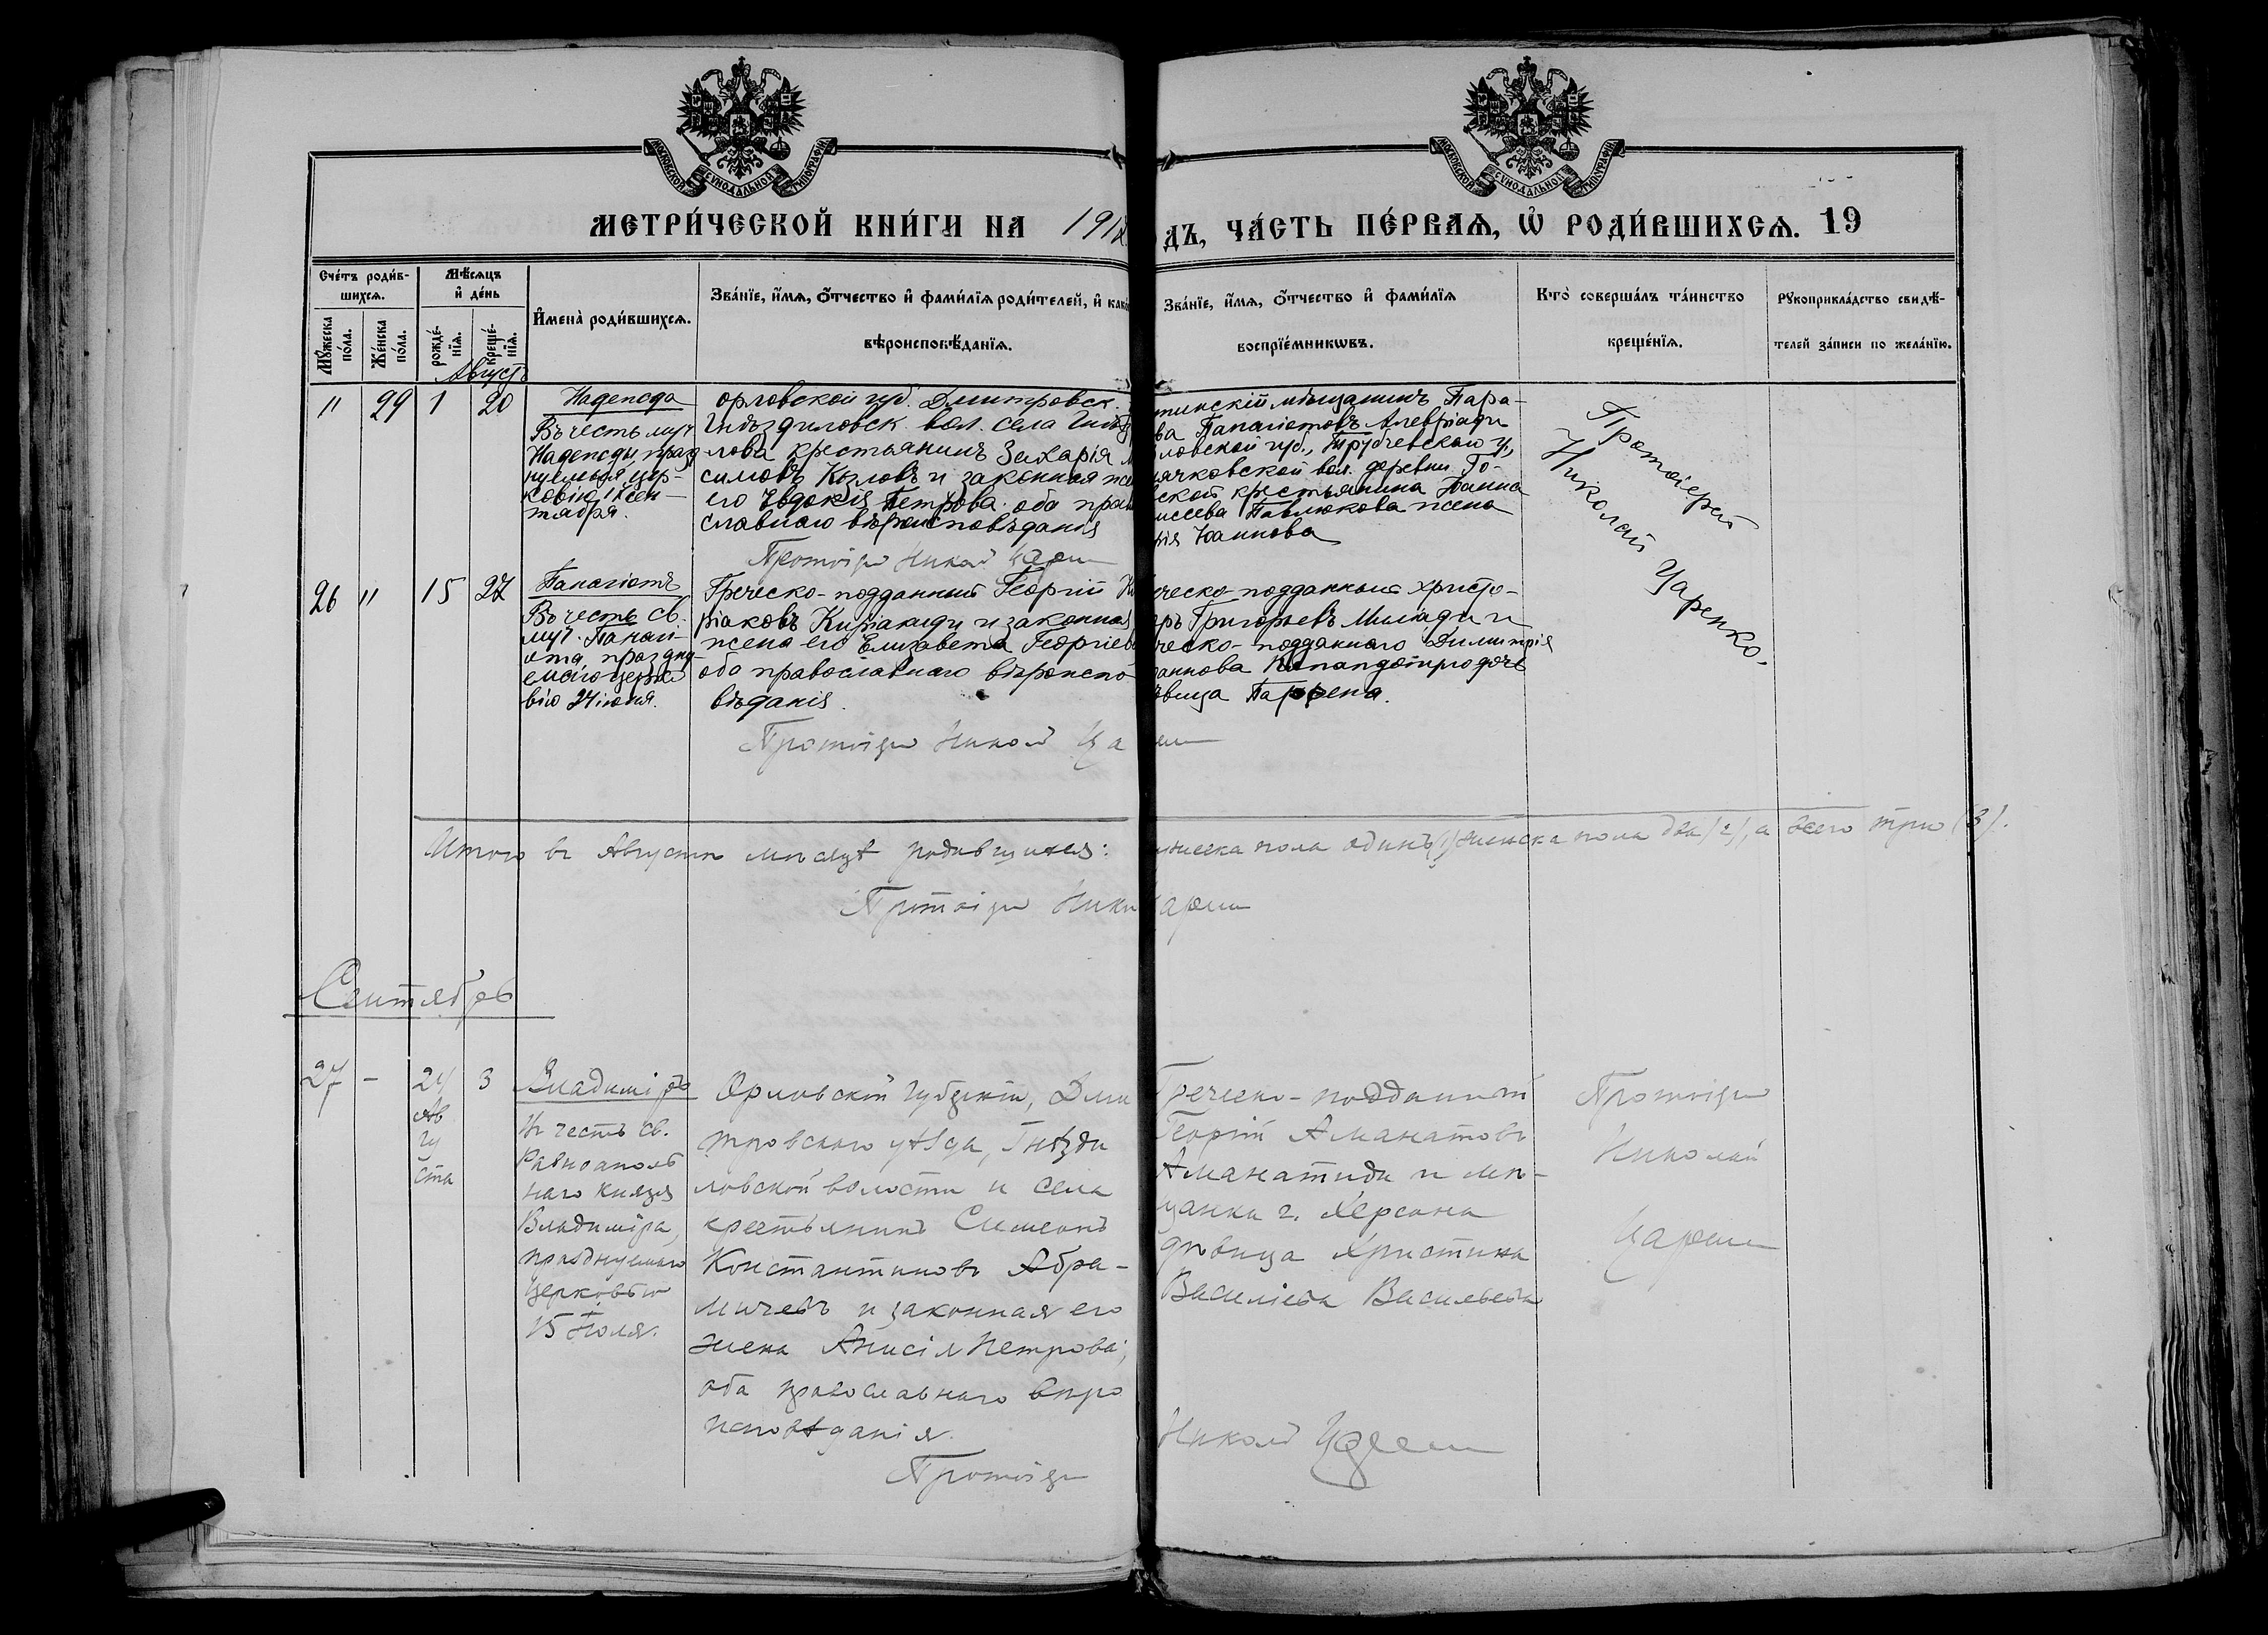 МОСКОВСКОЙ СѴНОДАЛЬНОЙ ТИПОГРАФІИ
МОСКОВСКОЙ СѴНОДАЛЬНОЙ ТИПОГРАФІИ
МЕТРИ́ЧЕСКОЙ КНИ́ГИ НА 191
ДЪ, ЧА́СТЬ ПЕ́РВАѦ, Ѽ РОДИ́ВШИХСѦ. 19
Сче́тъ роди́в-
шихсѧ.
Мꙋ́жеска по́ла.
Же́нска по́ла.
Мѣ́сѧцъ
и҆ де́нь
рожде́-
нїѧ.
креще́-
нїѧ.
И҆мена̀ роди́вшихсѧ.
Зва́нїе, и҆́мѧ, ѻ҆́тчество и҆ фами́лїѧ роди́телей, и҆ како
вѣроисповѣ́данїѧ.
Зва́нїе, и҆́мѧ, ѻ҆́тчество и҆ фами́лїѧ
воспрїе́мникѡвъ.
Кто̀ соверша́лъ та́инство
креще́нїѧ.
Рꙋкоприкла́дство свидѣ́-
телей за́писи по жела́нїю.
Августъ
" 29 1 20
Надежда
Въ честь муч
Надежды празд
нуемыя цер-
ковію 17 сен-
тября.
Орловской губ. Дмитровск.
Гнѣздиловск. вол. села Гнѣзд
лова крестьянинъ Захарія М
симовъ Козловъ и законная же
его Евдокія Петрова оба прав
славнаго вѣроисповѣданія
Протоіерей Никол Царен
тинскій мѣщанинъ Пара-
ва Панагіотовъ Алевріади
ловской губ., Трубчевскаго у.,
ячковской вол. деревни Го-
ской крестьянина Іоанна
исеева Павлюкова жена
рія Іоаннова
Протоіерей
Николай Царенко.
26 " 15 27
Панагіотъ
Въ честь св.
муч. Панагі-
ота, праздну-
емаго церко
вію 24 іюня.
Греческо-подданный Георгій К
ріаковъ Киріакиди и законная
жена его Елизавета Георгіев
оба православнаго вѣроиспо-
вѣданія.
Протоіерей Никол Ца ен
ческо-подданный Христо-
ръ Григорьевъ Миліади и
ческо-подданнаго Димитрія
аннова дочь
вица Парѳена.
Итого въ Августѣ мѣсяцѣ родившихся:
жеска пола одинъ (1) женска пола два (2), а всего три (3).
Протоіерей Нико арен
Сентябрь
27 – 24 3
Ав
гу
ста
Владиміръ
въ честь св.
Равноаполь
наго князя
Владиміра,
празднуемаго
церковью
15 Іюля.
Орловской губерніи, Дми
тровскаго уѣзда, Гнѣзди
ловской волости и села
крестьянинъ Симеонъ
Константиновъ Абра-
мичевъ и законная его
жена Анисія Петрова;
оба православнаго вѣро
исповѣданія
Протоіерей
Греческо-подданный
Георгій Аманатовъ
Аманатиди и мѣ-
щанка г. Херсона
дѣвица Христина
Василіева Васильева
Никол Царен
Протоіерей
Николай
Царен